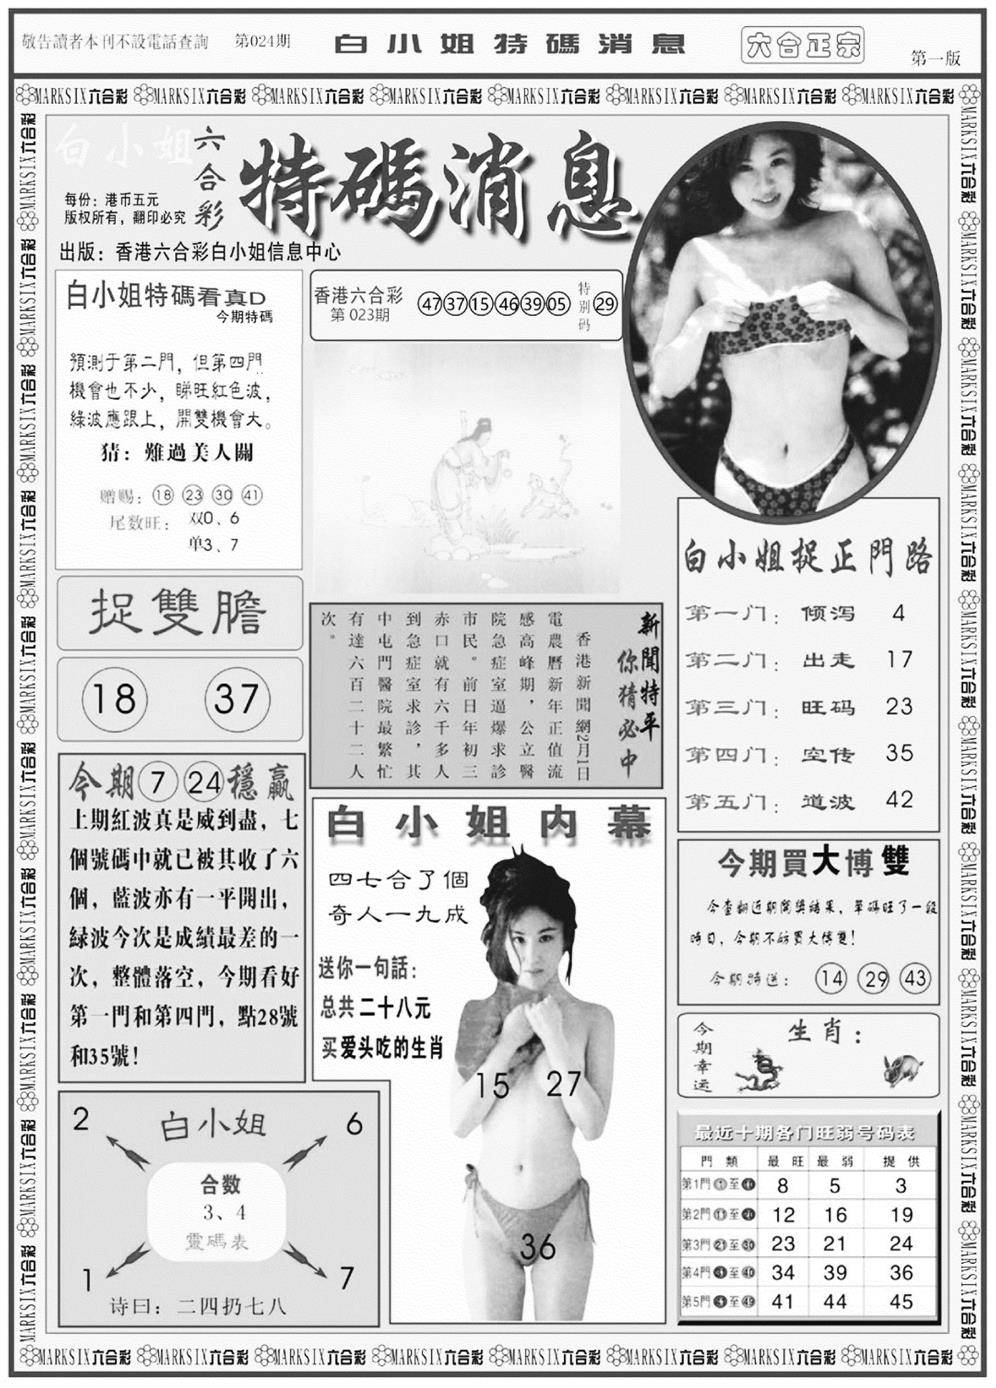 敬告讀者本刊不設電話查詢 第024期 白小姐特碼消息 六合正宗 第一版
MARKSIX六合彩 MARKSIX六合彩 MARKSIX六合彩 MARKSIX六合彩 MARKSIX六合彩 MARKSIX六合彩 MARKSIX六合彩 MARKSIX六合彩
白小姐
六合彩
特碼消息
每份：港币五元
版权所有，翻印必究
出版：香港六合彩白小姐信息中心
白小姐特碼看真D
今期特碼
預測于第二門，但第四門
機會也不少，睇旺紅色波，
綠波應跟上，開雙機會大。
猜：難過美人關
赠赐：18 23 30 41
尾数旺：双0、6
单3、7
香港六合彩
第 023期
47 37 15 46 39 05
特别码
29
捉雙膽
18 37
新聞特平
你猜必中
香港新聞網2月1日
電農曆新年正值流
感高峰期，公立醫
院急症室逼爆求診
市民。前日年初三
赤口就有六千多人
到急症室求診，其
中屯門醫院最繁忙
有達六百二十二人
次。
白小姐捉正門路
第一门：倾泻 4
第二门：出走 17
第三门：旺码 23
第四门：空传 35
第五门：道波 42
今期 7 24 穩贏
上期紅波真是威到盡，七
個號碼中就已被其收了六
個，藍波亦有一平開出，
緑波今次是成績最差的一
次，整體落空，今期看好
第一門和第四門，點28號
和35號！
白小姐内幕
四七合了個
奇人一九成
送你一句話：
总共二十八元
买爱头吃的生肖
15 27
36
今期買大博雙
今查翻近期開獎結果，單碼旺了一段
時日，今期不妨買大博雙！
今期特送：14 29 43
今期幸运
生肖：
2 6
白小姐
合数
3、4
靈碼表
1 7
诗曰：二四扔七八
最近十期各门旺弱号码表
門類 最旺 最弱 提供
第1門①至⑩ 8 5 3
第2門⑪至⑳ 12 16 19
第3門㉑至㉚ 23 21 24
第4門㉛至㊵ 34 39 36
第5門㊶至㊾ 41 44 45
MARKSIX六合彩 MARKSIX六合彩 MARKSIX六合彩 MARKSIX六合彩 MARKSIX六合彩 MARKSIX六合彩 MARKSIX六合彩 MARKSIX六合彩